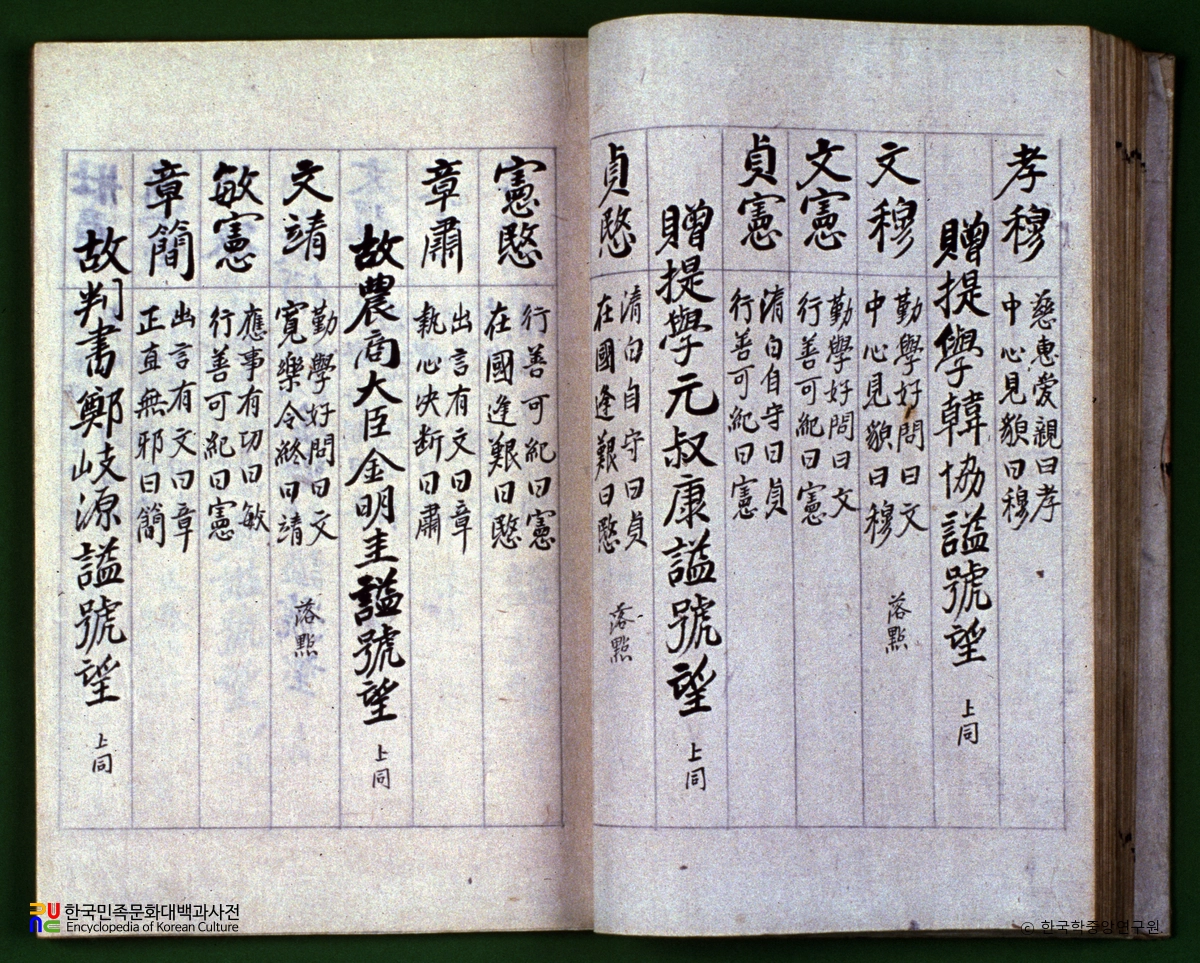 孝穆 慈惠愛親曰孝 中心見貌曰穆
贈提學韓協謚號望 上同
文穆 勤學好問曰文 中心見貌曰穆 落點
文憲 勤學好問曰文 行善可紀曰憲
貞憲 淸白自守曰貞 行善可紀曰憲
贈提學元叔康謚號望 上同
貞愍 淸白自守曰貞 在國逢艱曰愍 落點
憲愍 行善可紀曰憲 在國逢艱曰愍
章肅 出言有文曰章 執心決断曰肅
故農商大臣金明圭謚號望 上同
文靖 勤學好問曰文 寬樂令終曰靖 落點
敏憲 應事有功曰敏 行善可紀曰憲
章簡 出言有文曰章 正直無邪曰簡
故判書鄭岐源謚號望 上同
한국민족문화대백과사전
Encyclopedia of Korean Culture
© 한국학중앙연구원